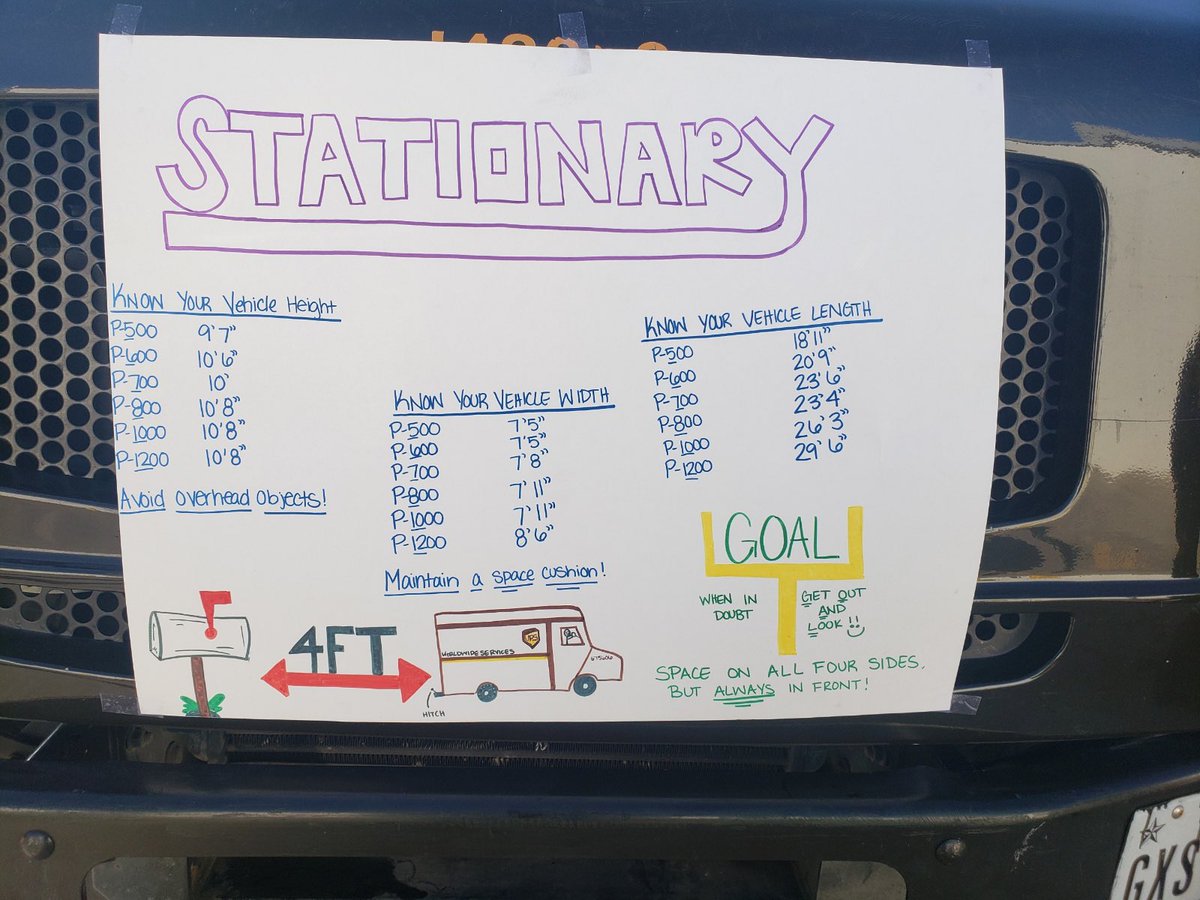 STATIONARY
KNOW YOUR Vehicle Height
P-500 9'7"
P-600 10'6"
P-700 10'
P-800 10'8"
P-1000 10'8"
P-1200 10'8"
Avoid overhead objects!
KNOW YOUR VEHICLE WIDTH
P-500 7'5"
P-600 7'5"
P-700 7'8"
P-800 7'11"
P-1000 7'11"
P-1200 8'6"
Maintain a space cushion!
KNOW YOUR VEHICLE LENGTH
P-500 18'11"
P-600 20'9"
P-700 23'6"
P-800 23'4"
P-1000 26'3"
P-1200 29'6"
4FT
UPS
WORLDWIDE SERVICES
HITCH
GOAL
WHEN IN
DOUBT
GET OUT
AND
LOOK!!
SPACE ON ALL FOUR SIDES,
BUT ALWAYS IN FRONT!
GXS